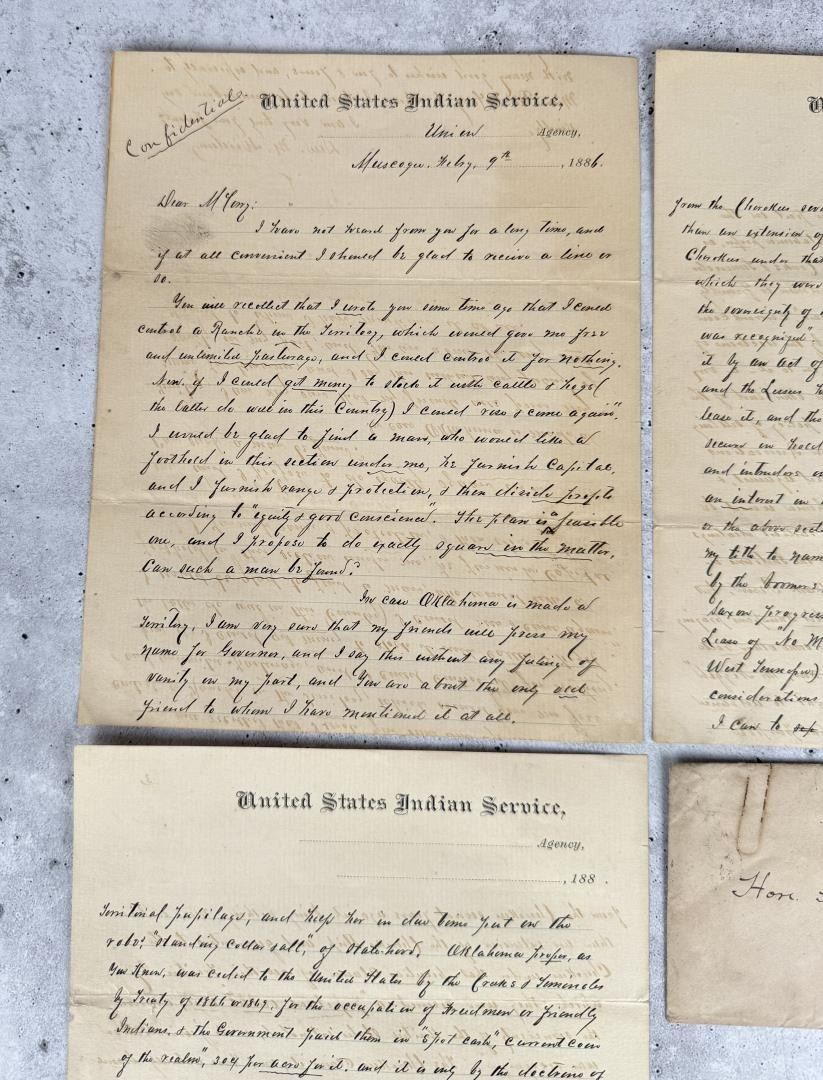 Confidential.
United States Indian Service,
Union Agency,
Muscogee, Feby. 9th, 1886.
Dear McCorry:
I have not heard from you for a long time, and
if at all convenient I should be glad to receive a line or
so.
You will recollect that I wrote you some time ago that I could
control a Rancho in the Territory, which would give me free
and unlimited pasturage, and I could control it for nothing.
Now, if I could get money to stock it with cattle & hogs (
the latter do well in this Country) I could "rise & come again".
I would be glad to find a man, who would like a
foothold in this section under me, he furnish Capital,
and I furnish range & protection, & then divide profits
according to "equity & good conscience". The plan is a feasible
one, and I propose to do exactly square in the matter,
Can such a man be found?
In case Oklahoma is made a
Territory, I am very sure that my friends will press my
name for Governor, and I say this without any feeling of
vanity on my part, and You are about the only old
friend to whom I have mentioned it at all.
from the Cherokees
than an extension of
Cherokees under that
which they were
the sovereignty of
was recognized".
it by an act of
and the Lessees
lease it, and the
secure in
and intruders
an interest in
or the above
my title to
by the boomers
Saxon progress
Lease of "No M
West Tennessee)
considerations
I can to
United States Indian Service,
Agency,
, 188 .
Territorial pupilage, and help her in due time put on the
robe, "standing collar & all", of statehood. Oklahoma proper, as
You Know, was ceded to the United States by the Creeks & Seminoles
by Treaty of 1866 or 1867. for the occupation of Freedmen or friendly
Indians, & the Government paid them in "Spot cash", current coin
of the realm", 30¢ per acre for it. and it is only by the doctrine of
Hon.